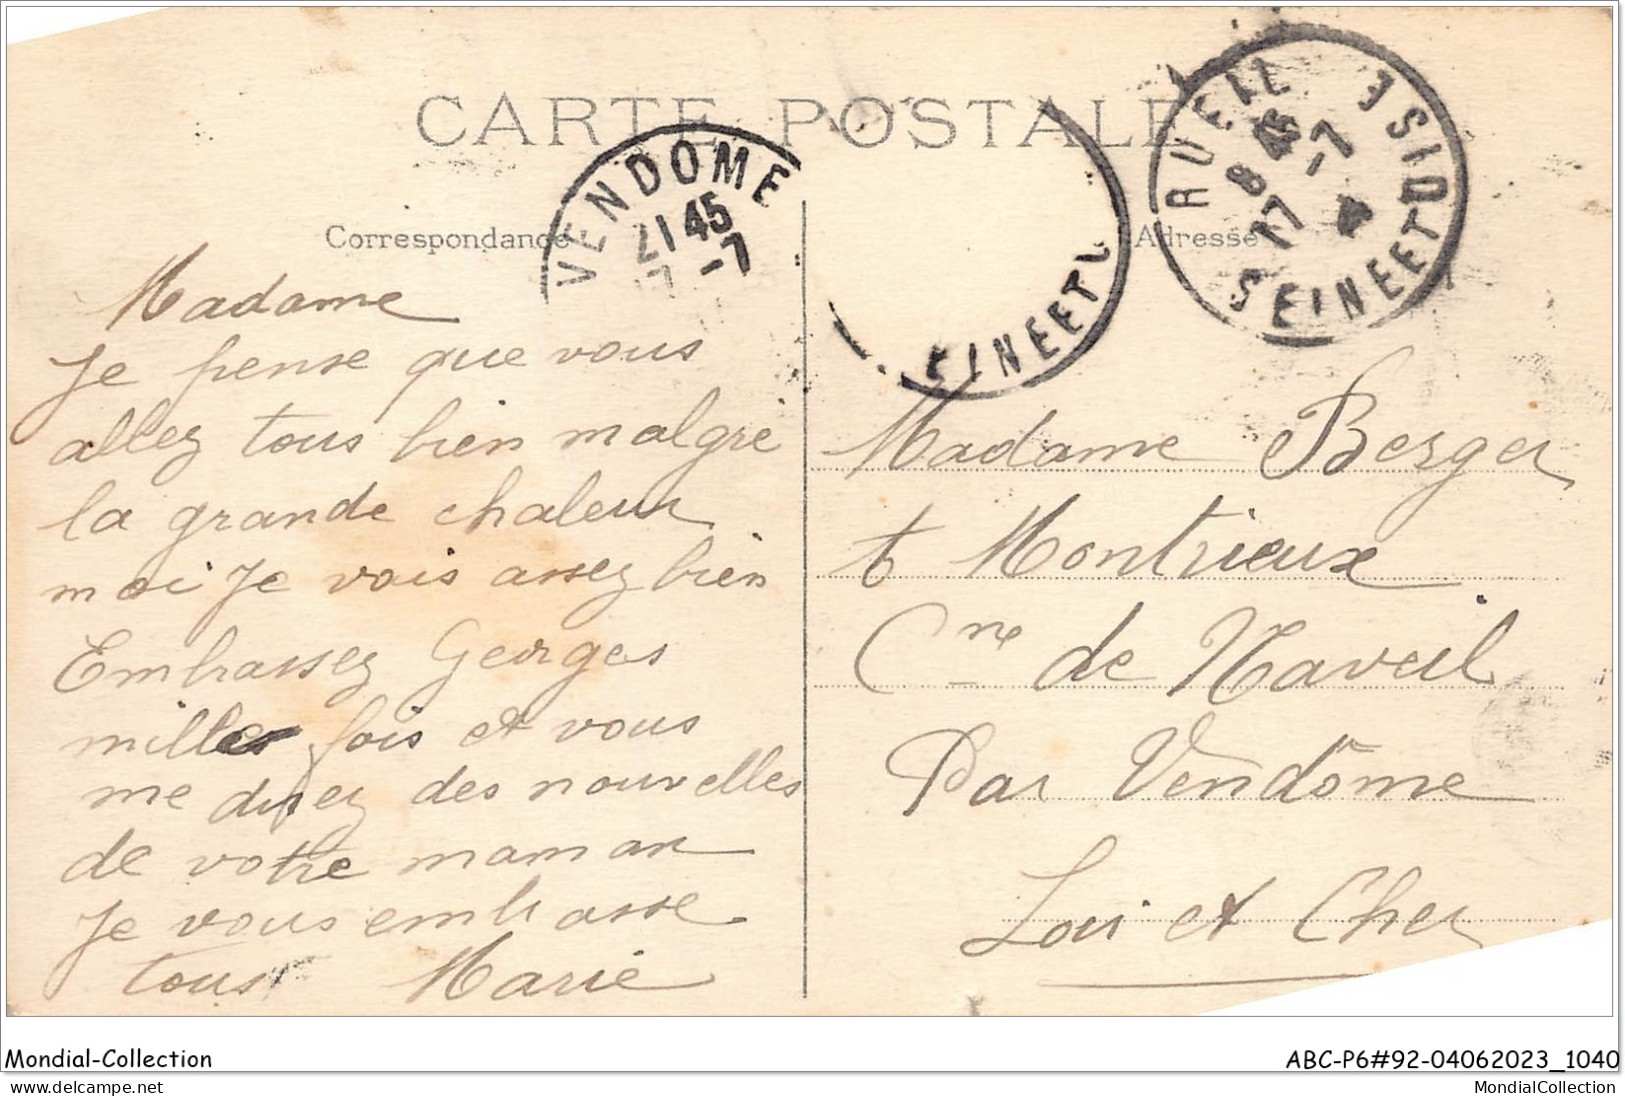 CARTE POSTALE
Correspondance
Adresse
VENDOME
21 45
17 -7
EINEET
RUEIL
8 45
17 -7
SEINE ET OISE
Madame
Je pense que vous
allez tous bien malgré
la grande chaleur
moi Je vais assez bien
Embrassez Georges
milles fois et vous
me disez des nouvelles
de votre maman
Je vous embrasse
tous Marie
Madame Berger
t Montrieux
Cne de Naveil
Par Vendôme
Loir et Cher
Mondial-Collection
ABC-P6#92-04062023_1040
delcampe.net
MondialCollection